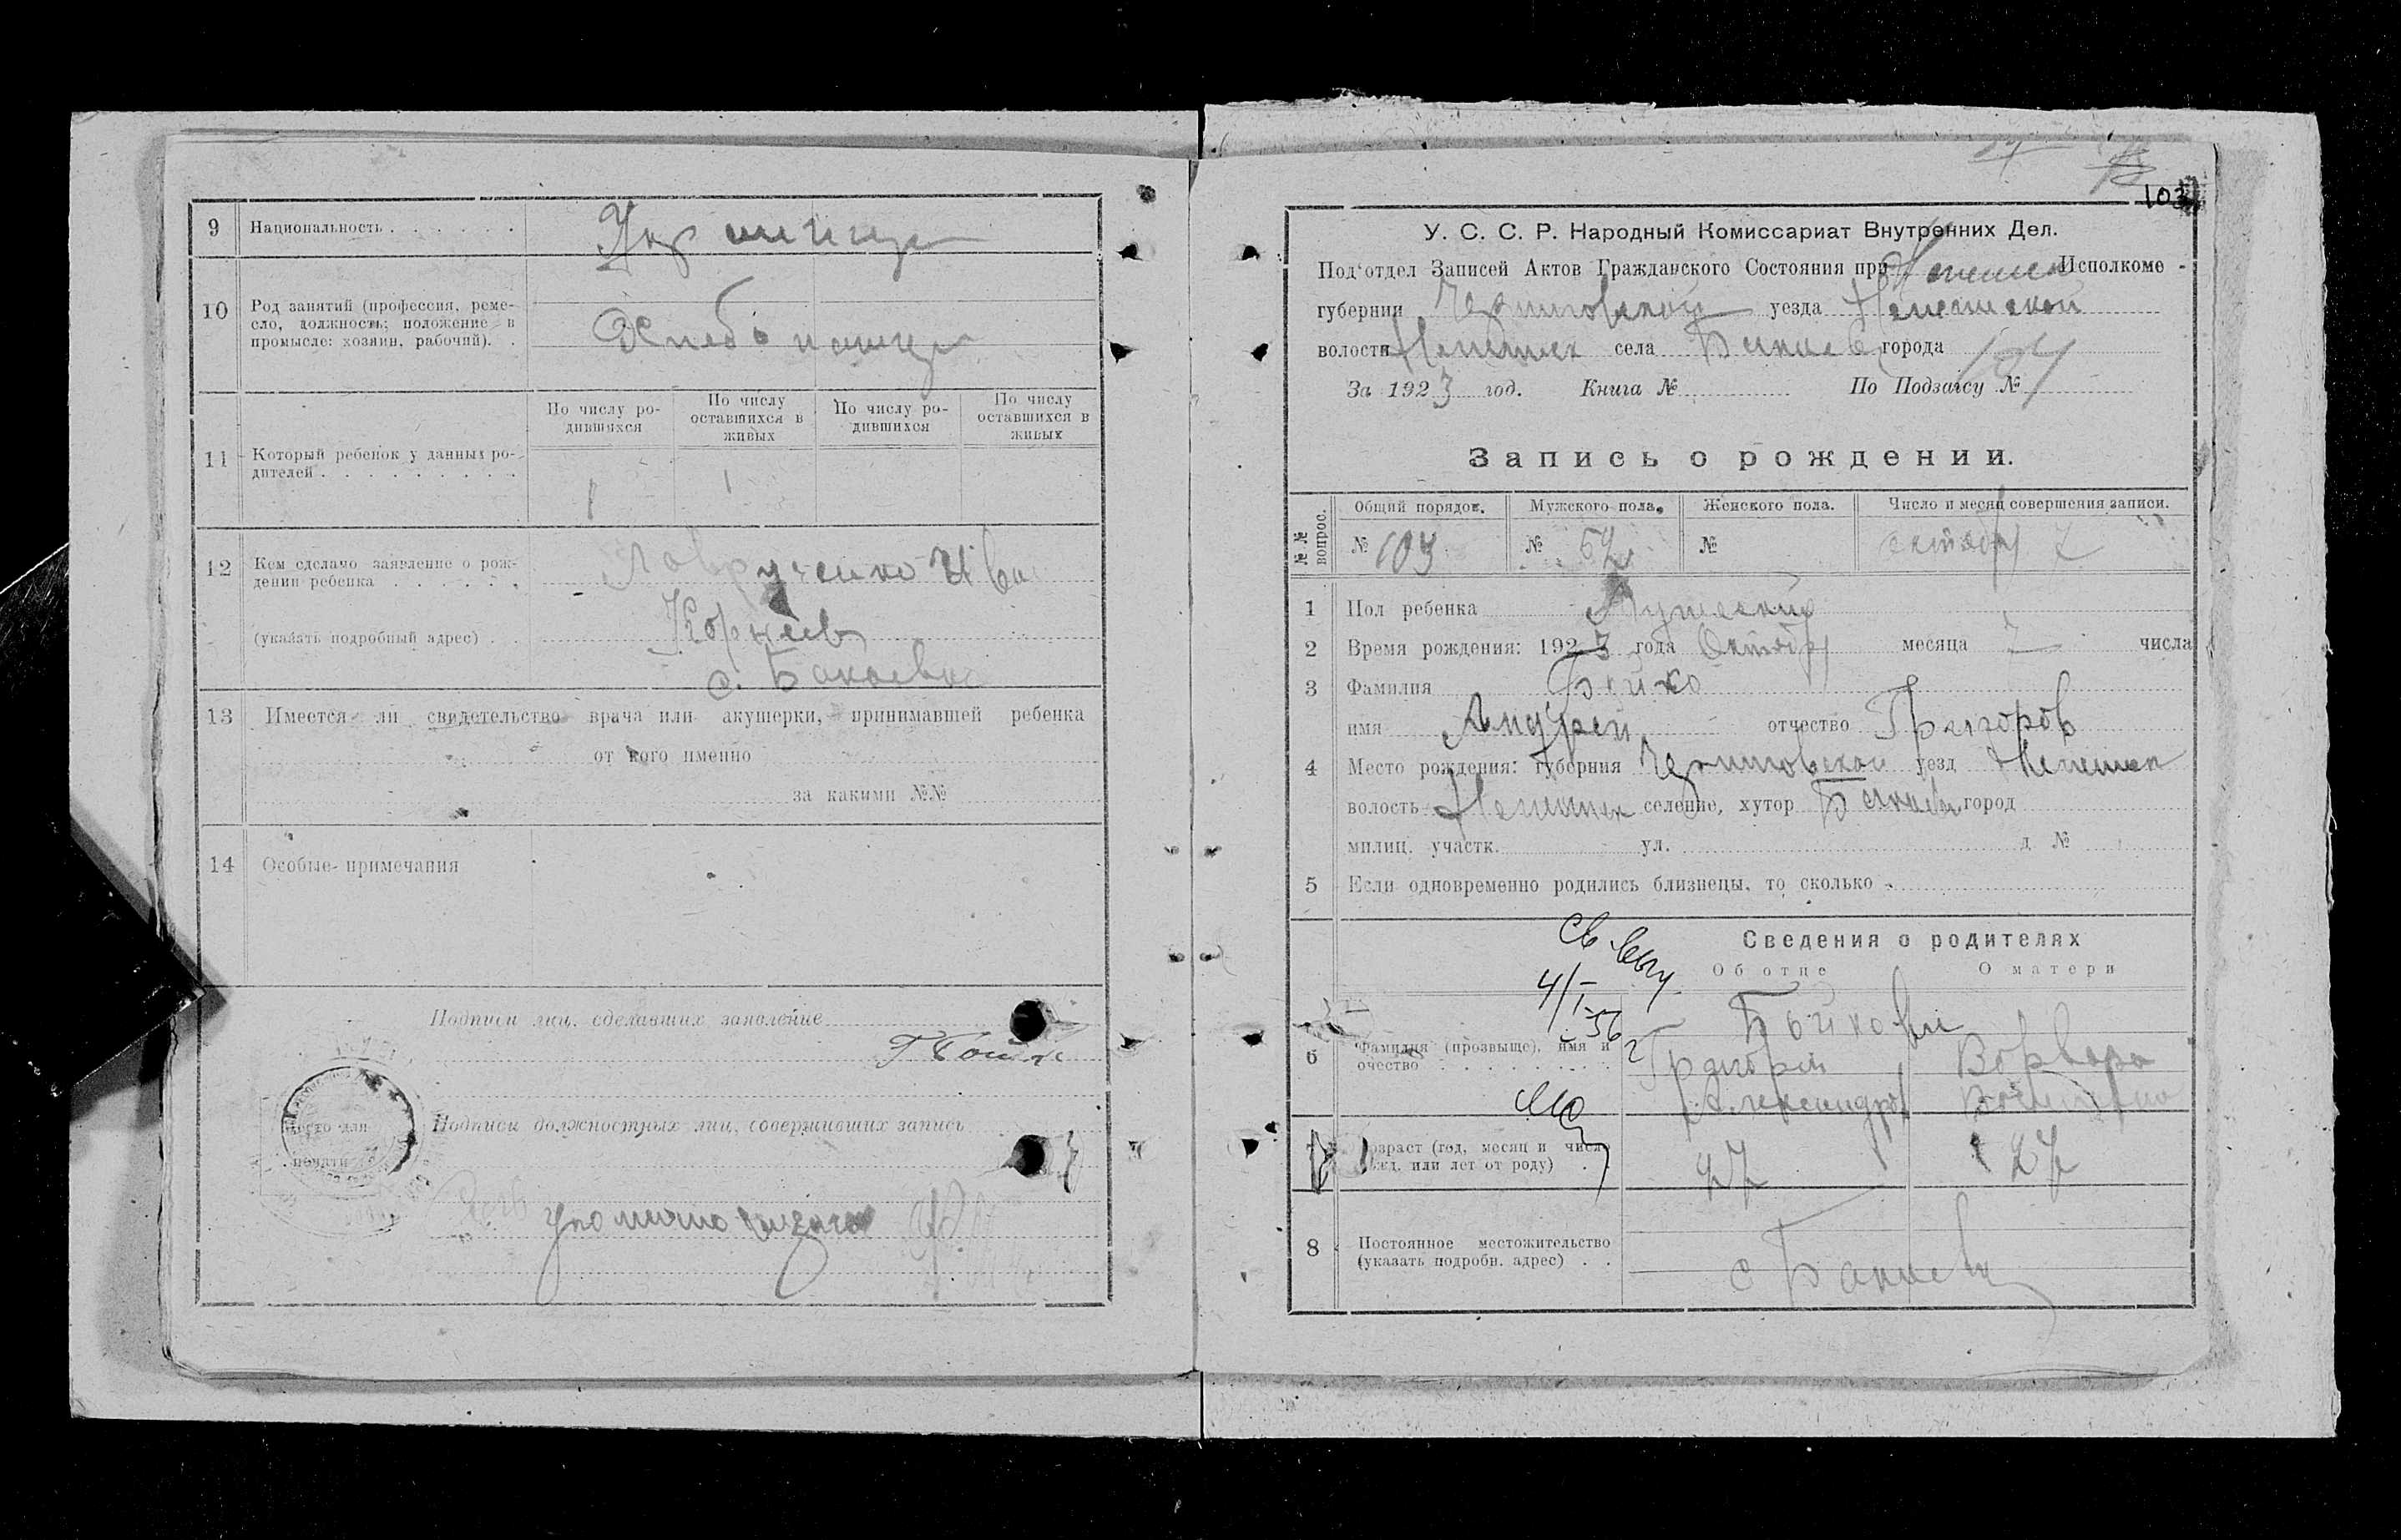 9 Национальность . . . . . .
Украинцы
10 Род занятий (профессия, реме-
сло, должность; положение в
промысле: хозяин, рабочий). .
Хлебопашцы
11 Который ребенок у данных ро-
дителей . . . . . . . . .
По числу ро-
дившихся
По числу
оставшихся в
живых
По числу ро-
дившихся
По числу
оставшихся в
живых
1 1
12 Кем сделано заявление о рож-
дении ребенка . . . . . .
Ива
(указать подробный адрес) . .
Корнеев
с. Бакаевка
13 Имеется ли свидетельство врача или акушерки, принимавшей ребенка
от кого именно
за какими №№
14 Особые примечания
Подписи лиц, сделавших заявление
Подписи должностных лиц, совершивших запись
Место для
печати
103
У. С. С. Р. Народный Комиссариат Внутренних Дел.
Под'отдел Записей Актов Гражданского Состояния при Исполкоме
губернии Черниговской уезда
волости села города
За 1923 год. Книга № По Подзагсу № 104
Запись о рождении.
№№ вопрос.
Общий порядок. Мужского пола. Женского пола. Число и месяц совершения записи.
№ 103 № 52 № октября 7
1 Пол ребенка Мужеский
2 Время рождения: 1923 года Октября месяца числа
3 Фамилия Бойко
имя Андрей отчество Григоров
4 Место рождения: губерния Черниговской уезд
волость селение, хутор город
милиц. участк. ул. д №
5 Если одновременно родились близнецы, то сколько
Св. выд.
4/I-56 г
Сведения о родителях
Об отце О матери
6 Фамилия (прозвище), имя и
очество . . . . . . . . .
Бойкови
Григорий Ворвара
Александров
7 Возраст (год, месяц и число
рожд. или лет от роду) . .
27 27
8 Постоянное местожительство
(указать подробн. адрес) . .
с Бакаевка